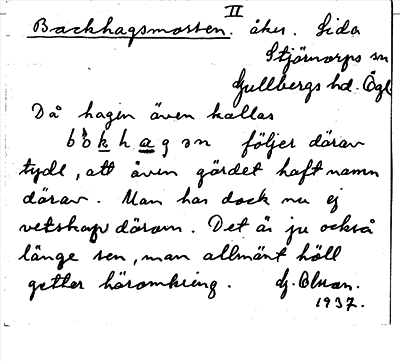 II
Backhagsmossen. åker. Sida
Stjärnorps sn
Gullbergs hd. Ögl
Då hagen även kallas
bòkhagən följer därav
tydl, att även gärdet haft namn
därav. Man har dock nu ej
vetskap därom. Det är ju också
länge sen, man allmänt höll
getter häromkring. G. Olson.
1937.